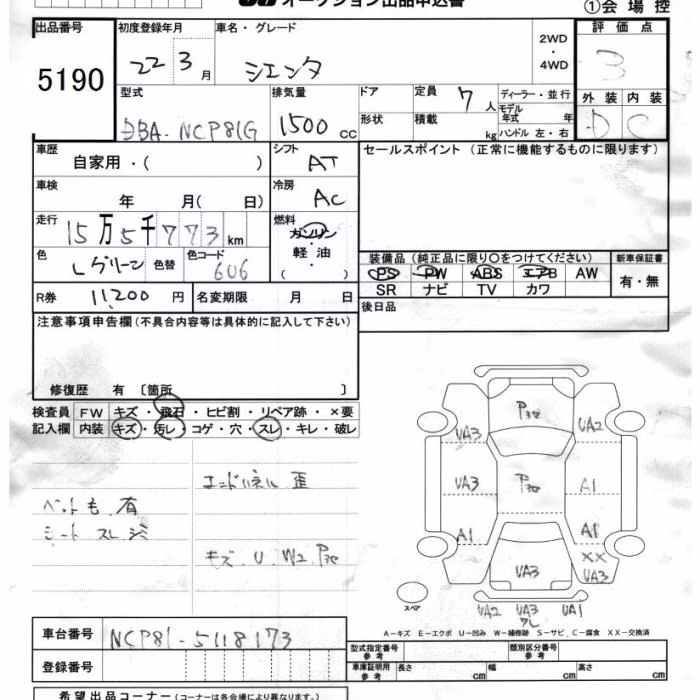 オークション出品申込書
①会場控
出品番号 初度登録年月 車名・グレード 2WD・4WD 評価点
5190 22 3月 シエンタ 3
型式 排気量 ドア 定員 7人 ディーラー・並行 外装 内装
DBA-NCP81G 1500cc 形状 積載 kg モデル年式 年 ハンドル 左・右 D C
車歴 自家用・( ) シフト AT セールスポイント (正常に機能するものに限ります)
車検 年 月( 日) 冷房 AC
走行 15万5千773km 燃料 ガソリン・軽油・( )
色 Lグリーン 色替 色コード 6U6 装備品 (純正品に限り○をつけてください) 新車保証書
PS PW ABS エアB AW 有・無
SR ナビ TV カワ
R券 11,200円 名変期限 月 日 後日品
注意事項申告欄 (不具合内容等は具体的に記入して下さい)
修復歴 有 [箇所 ]
検査員 FW キズ・飛石・ヒビ割・リペア跡・×要
記入欄 内装 キズ・汚レ・コゲ・穴・スレ・キレ・破レ
エンドパネル 歪
ペット毛 有
シート スレ シミ
キズ.U.W2.P有
P有
UA3 UA2
UA3 A1
A1 A1
XX
UA3 UA3
スペア
UA2 UA3 UA1
A－キズ E－エクボ U－凹み W－補修跡 S－サビ C－腐食 XX－交換済
車台番号 NCP81-5118173
型式指定番号 参考 類別区分番号 参考
登録番号 車庫証明用 参考 長さ cm 幅 cm 高さ cm
希望出品コーナー (コーナーは各会場により異なります。)